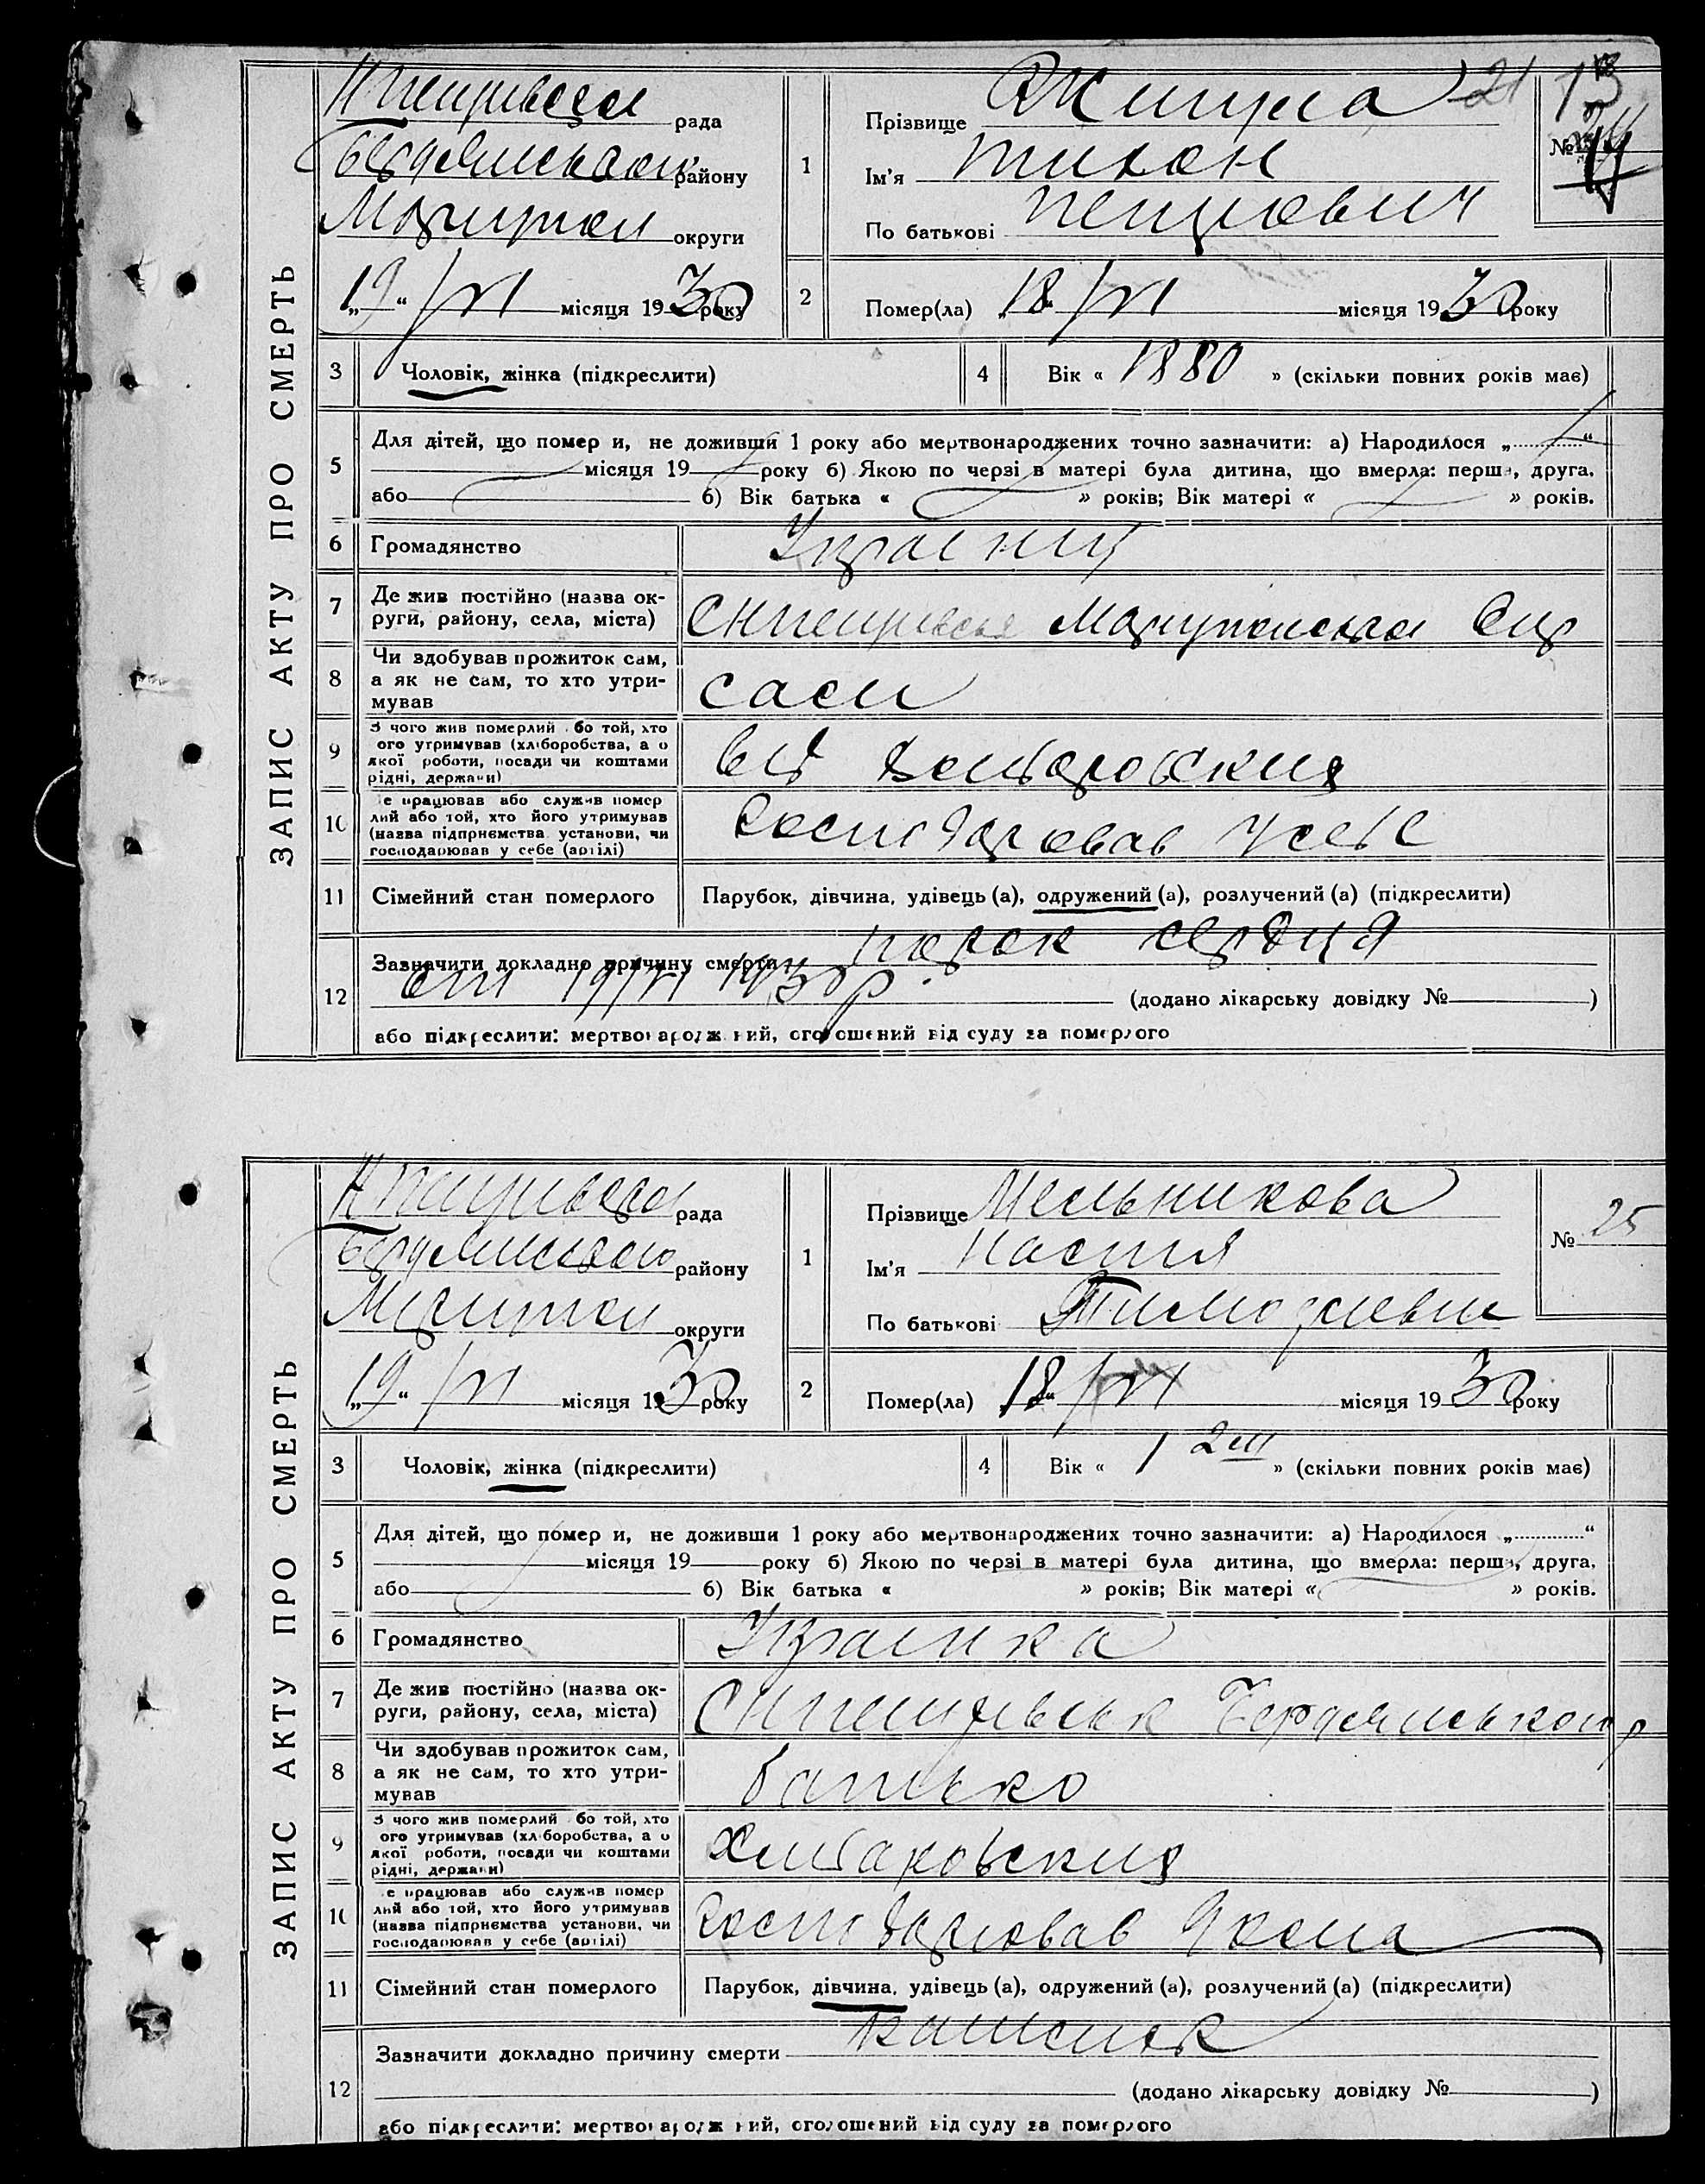 ЗАПИС АКТУ ПРО СМЕРТЬ
рада
району
округи
„19“ /VI місяця 1930 року
1
Прізвище Жигула
Ім'я Тихон
По батькові Петрович
21 13
№
2
Помер(ла) „18“ /VI місяця 1930 року
3
Чоловік, жінка (підкреслити)
4
Вік « 1880 » (скільки повних років має)
5
Для дітей, що помер и, не доживши 1 року або мертвонароджених точно зазначити: а) Народилося „ “
місяця 19 року б) Якою по черзі в матері була дитина, що вмерла: перша, друга.
або б) Вік батька « » років; Вік матері « » років.
6
Громадянство
Українц
7
Де жив постійно (назва ок-
руги, району, села, міста)
Маріупольська Окр
8
Чи здобував прожиток сам,
а як не сам, то хто утри-
мував
сам
9
З чого жив померлий бо той, хто
ого утримував (хліборобства, а о
якої роботи, посади чи коштами
рідні, держави)
10
е працював або служив помер
лий або той, хто його утримував
(назва підприємства установи, чи
господарював у себе (артілі)
Господарював усебе
11
Сімейний стан померлого
Парубок, дівчина, удівець (а), одружений (а), розлучений (а) (підкреслити)
12
Зазначити докладно причину смерти порок сердця
19/VI 1930р.
(додано лікарську довідку № )
або підкреслити: мертвонароджений, оголошений від суду за померлого
ЗАПИС АКТУ ПРО СМЕРТЬ
рада
району
округи
„19“ /VI місяця 1930 року
1
Прізвище Мельникова
Ім'я Настя
По батькові
№ 25
2
Помер(ла) „18“ /VI місяця 1930 року
3
Чоловік, жінка (підкреслити)
4
Вік « 1 2м » (скільки повних років має)
5
Для дітей, що помер и, не доживши 1 року або мертвонароджених точно зазначити: а) Народилося „ “
місяця 19 року б) Якою по черзі в матері була дитина, що вмерла: перша, друга.
або б) Вік батька « » років; Вік матері « » років.
6
Громадянство
Українка
7
Де жив постійно (назва ок-
руги, району, села, міста)
Бердянського р
8
Чи здобував прожиток сам,
а як не сам, то хто утри-
мував
батько
9
З чого жив померлий бо той, хто
ого утримував (хліборобства, а о
якої роботи, посади чи коштами
рідні, держави)
10
е працював або служив помер
лий або той, хто його утримував
(назва підприємства установи, чи
господарював у себе (артілі)
Господарював
11
Сімейний стан померлого
Парубок, дівчина, удівець (а), одружений (а), розлучений (а) (підкреслити)
12
Зазначити докладно причину смерти кашель
(додано лікарську довідку № )
або підкреслити: мертвонароджений, оголошений від суду за померлого